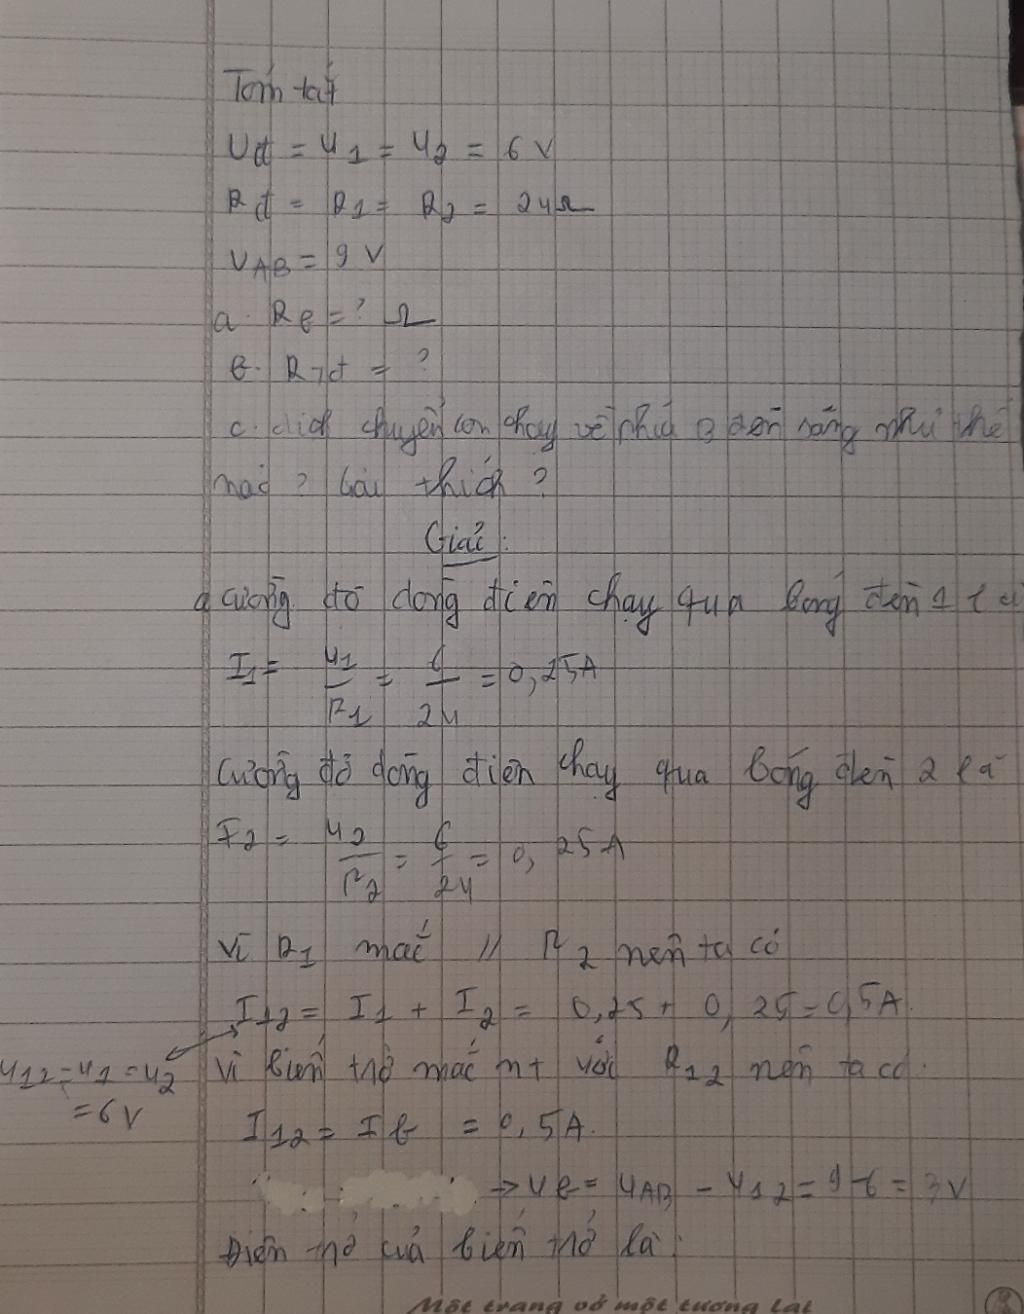 Tóm tắt
Uđ = U1 = U2 = 6 V
Rđ = R1 = R2 = 24Ω
UAB = 9 V
a. Rb = ? Ω
b. Rtđ = ?
c. dich chuyển con chạy về phía B đèn sáng như thế
nào ? Giải thích ?
Giải:
a Cường độ dòng điện chạy qua bóng đèn 1 là
I1 = U1/R1 = 6/24 = 0,25A
Cường độ dòng điện chạy qua bóng đèn 2 là
I2 = U2/R2 = 6/24 = 0,25A
Vì R1 mắc // R2 nên ta có
I12 = I1 + I2 = 0,25 + 0,25 = 0,5A.
U12 = U1 = U2
= 6V
Vì biến trở mắc nt với R12 nên ta có.
I12 = Ib = 0,5A.
→ Ub = UAB - U12 = 9-6 = 3V
Điện trở của biến trở là:
Một trang vở một tương lai